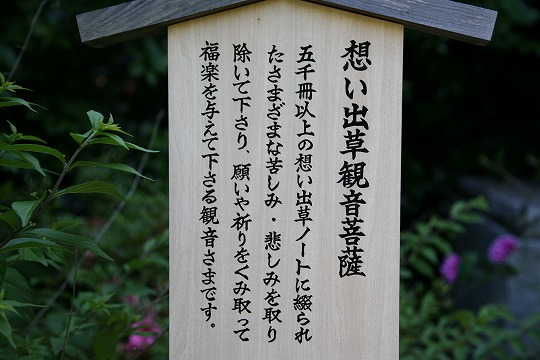 想い出草観音菩薩
五千冊以上の想い出草ノートに綴られ
たさまざまな苦しみ・悲しみを取り
除いて下さり、願いや祈りをくみ取って
福楽を与えて下さる観音さまです。